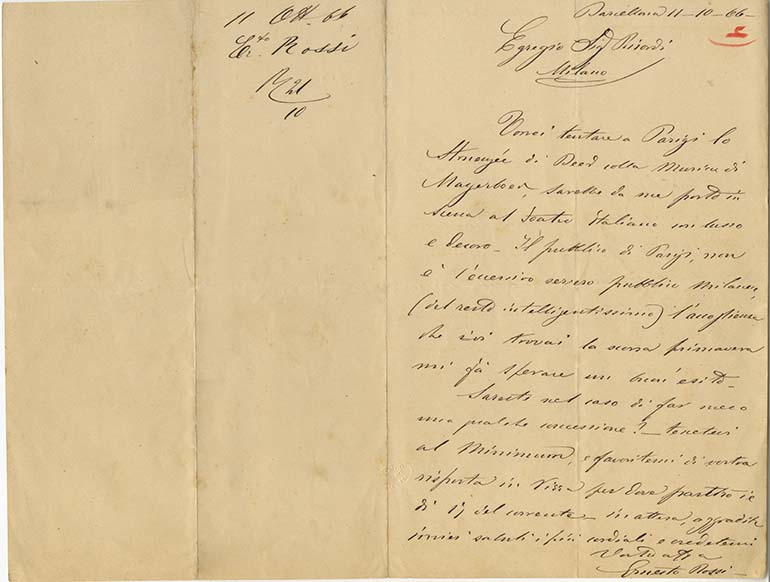 11 Ott. 66
Er.to Rossi
R 21
10
Barcellona 11-10-66-
Egregio Sig Ricordi
Milano
Vorrei tentare a Parigi lo
Struensée di Beer colla Musica di
Mayerbeer, sarebbe da me porto in
scena al teatro italiano con lusso
e decoro. Il pubblico di Parigi, non
è l'eccessivo severo pubblico Milanese,
(del resto intelligentissimo) l'accoglienza
che ivi trovai la scorsa primavera
mi fà sperare un buon' esito-
Sareste nel caso di far meco
una qualche concessione? - tenetevi
al Minimum, e favoritemi di vostra
risposta in Nizza per dove partirò il
di 17 del corrente - in attesa, aggradite
i miei saluti i più cordiali e credetemi
Ernesto Rossi -